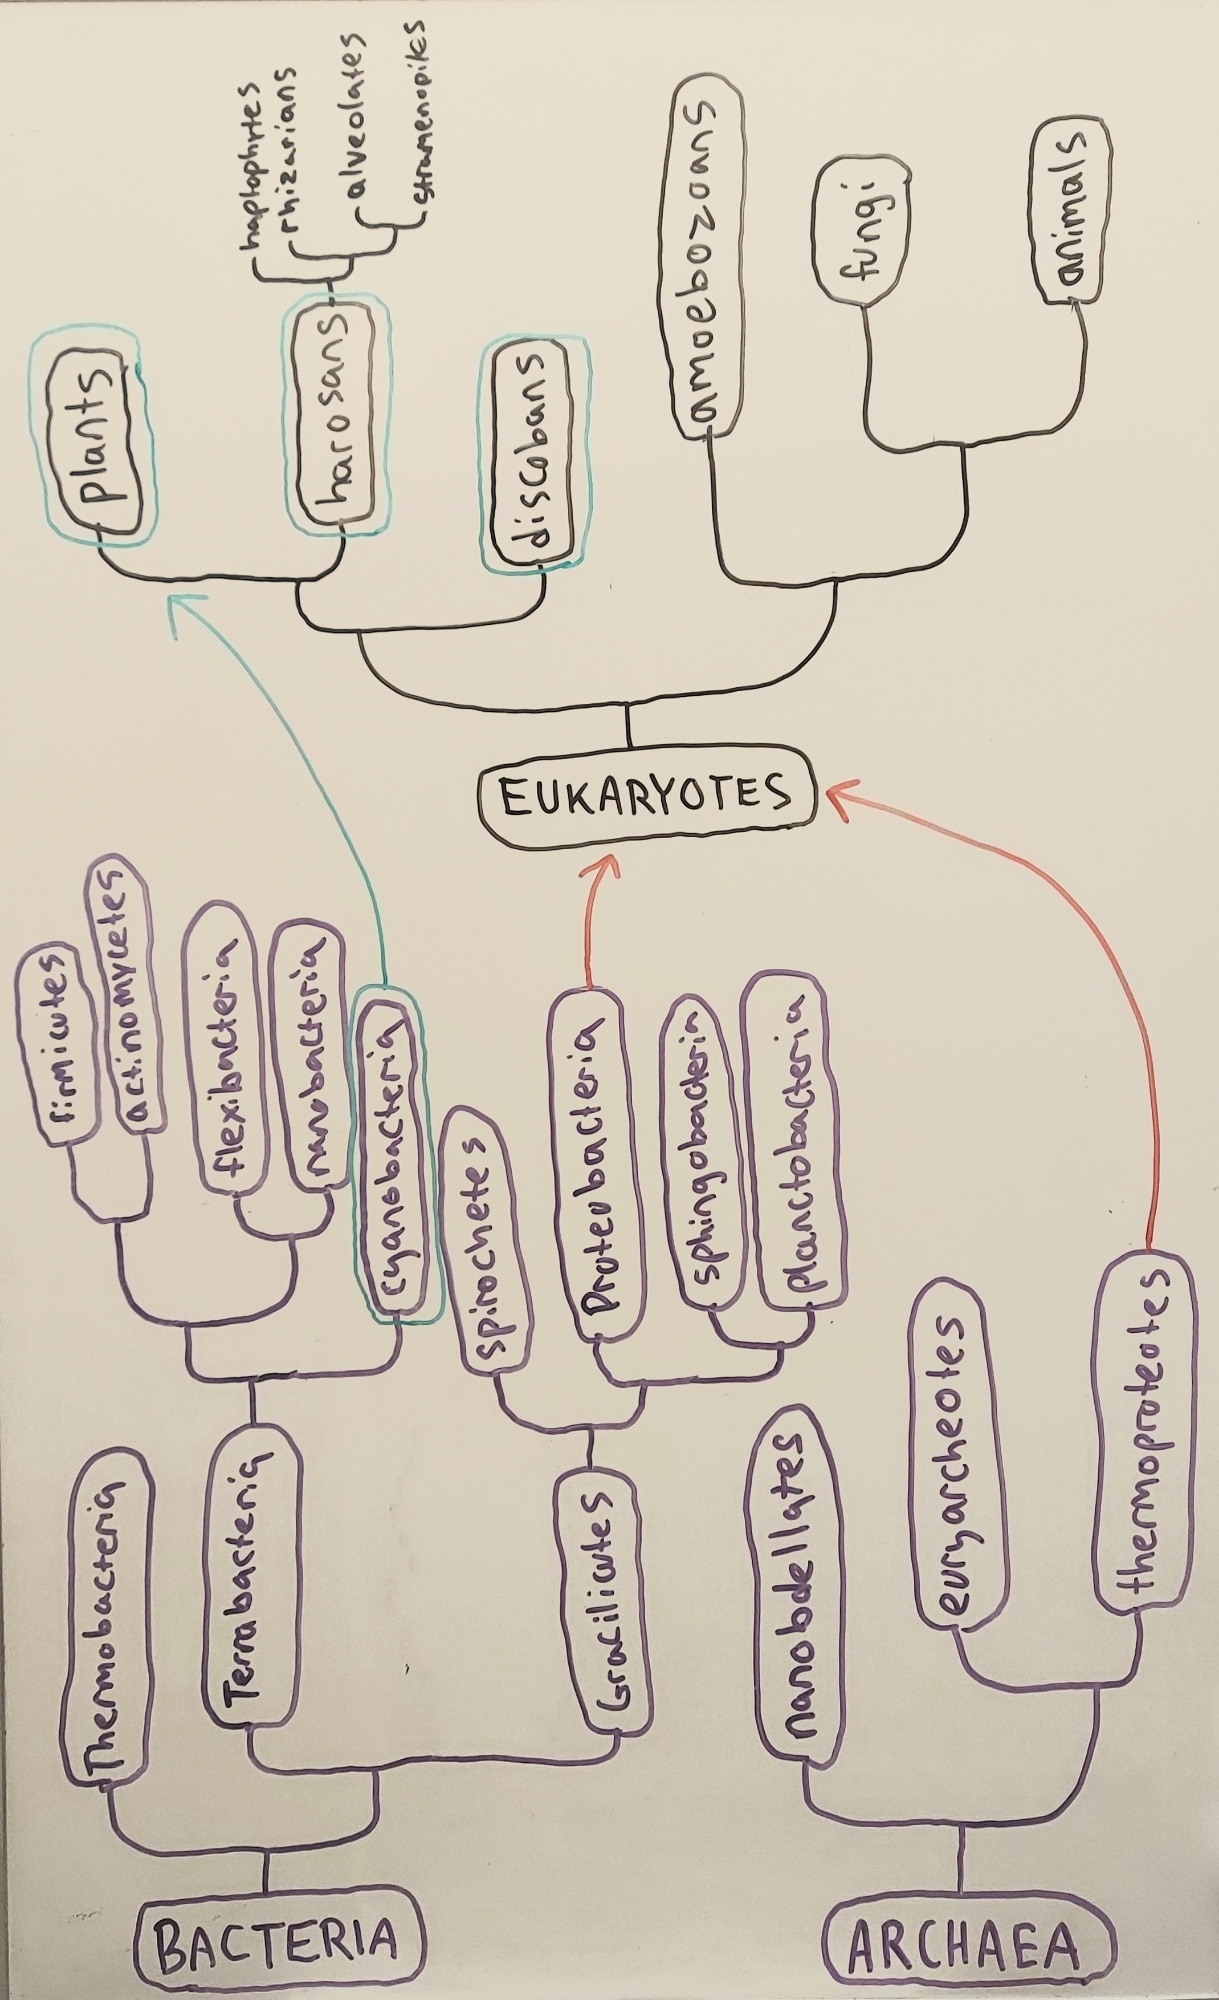 BACTERIA
Thermobacteria
Terrabacteria
firmicutes
actinomycetes
flexibacteria
nanobacteria
cyanobacteria
Gracilicutes
spirochetes
Proteobacteria
sphingobacteria
planctobacteria
ARCHAEA
nanobdellates
euryarcheotes
thermoproteotes
EUKARYOTES
plants
harosans
haptophytes
rhizarians
alveolates
stramenopiles
discobans
amoebozoans
fungi
animals